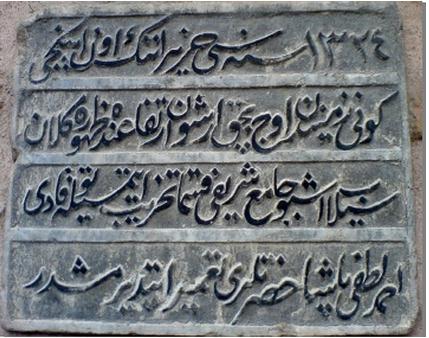 ١٣٢٤ سنه سی حزیراننك اون ایکنجی
کونی زمیندن اوچ بچق ارشون ارتفاعنده ظهوره کلان
سیلاب اشبو جامع شریفی قسما تخریب ایتمسیله
احمد لطفی پاشا حضرتلری تعمیر ایتدیرمشدر